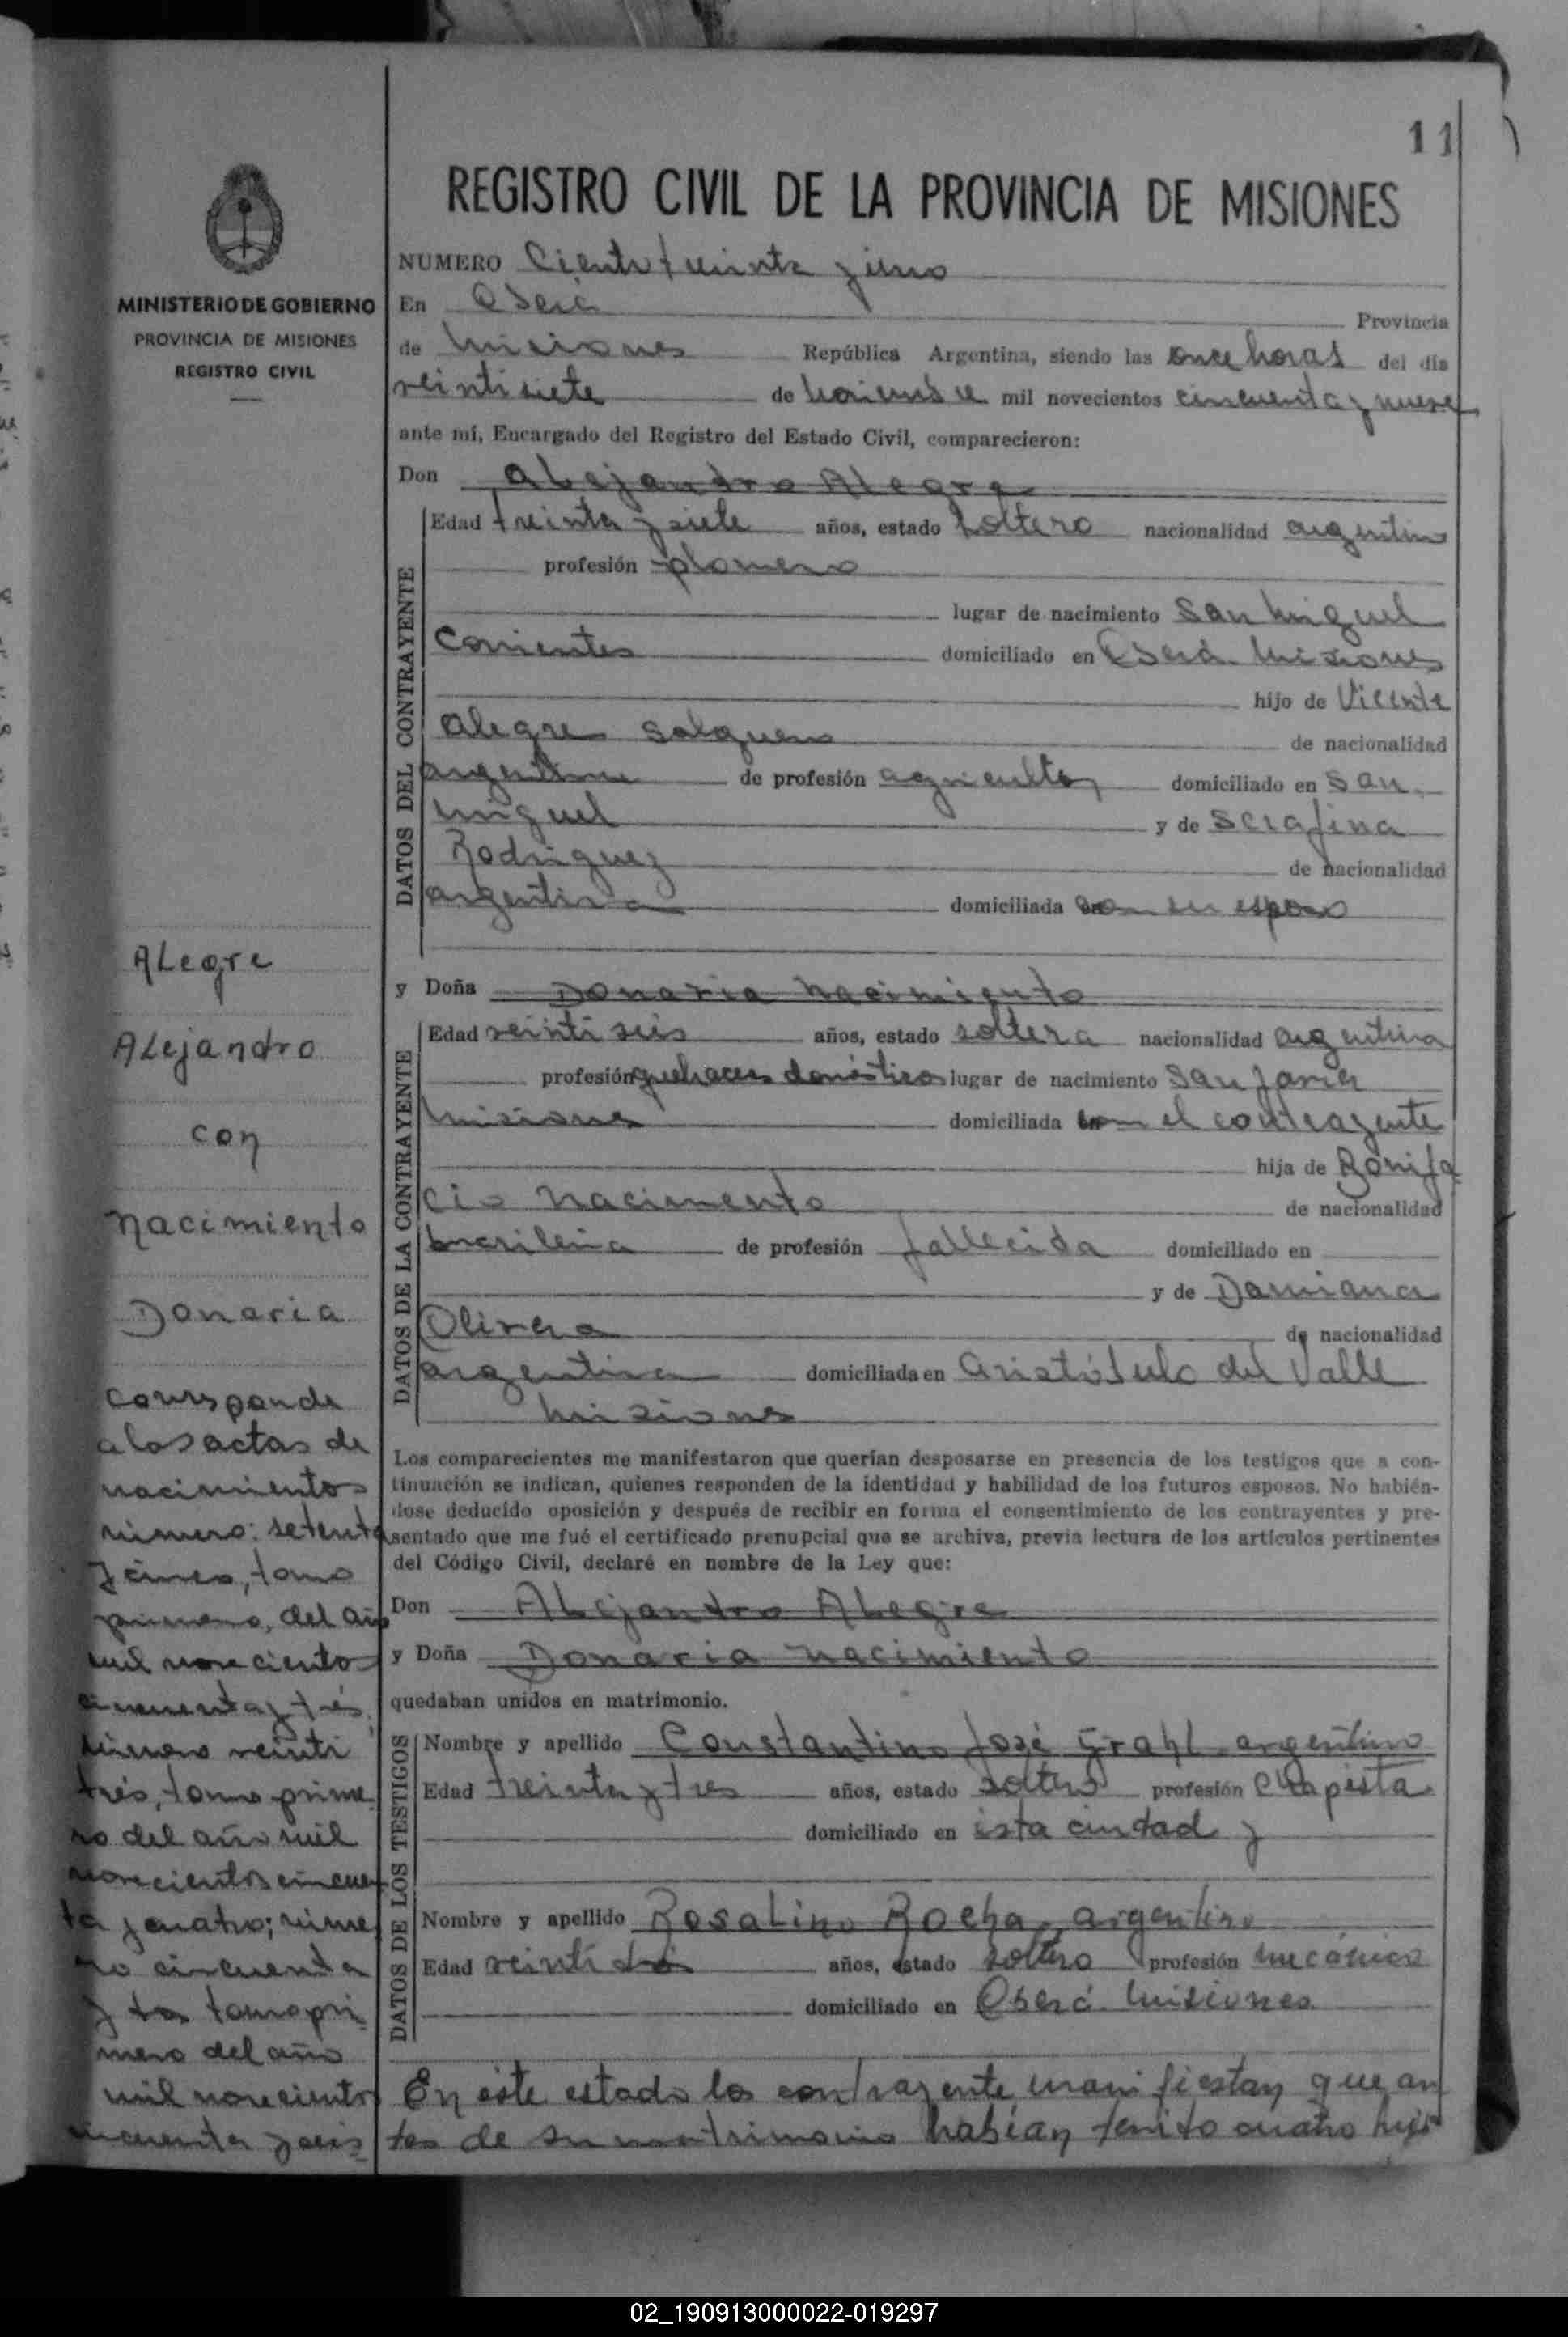 11
REGISTRO CIVIL DE LA PROVINCIA DE MISIONES
MINISTERIO DE GOBIERNO
PROVINCIA DE MISIONES
REGISTRO CIVIL
NUMERO Ciento treinta y uno
En Oberá Provincia
de Misiones República Argentina, siendo las once horas del día
veintisiete de noviembre mil novecientos cincuenta y nueve
ante mí, Encargado del Registro del Estado Civil, comparecieron:
Don Alejandro Alegre
DATOS DEL CONTRAYENTE
Edad treinta y siete años, estado soltero nacionalidad argentino
profesión plomero
lugar de nacimiento San Miguel
Corrientes domiciliado en Oberá Misiones
hijo de Vicente
Alegre Salguero de nacionalidad
argentino de profesión agricultor domiciliado en San
Miguel y de Serafina
Rodriguez de nacionalidad
argentina domiciliada con su esposo
y Doña Donaria Nacimiento
DATOS DE LA CONTRAYENTE
Edad veintiseis años, estado soltera nacionalidad argentina
profesión quehaceres domésticos lugar de nacimiento San Javier
Misiones domiciliada con el contrayente
hija de Bonifa
cio Nacimento de nacionalidad
brasileña de profesión fallecida domiciliado en
y de Damiana
Olivera de nacionalidad
argentina domiciliada en Aristóbulo del Valle
Misiones
Los comparecientes me manifestaron que querían desposarse en presencia de los testigos que a con-
tinuación se indican, quienes responden de la identidad y habilidad de los futuros esposos. No habién-
dose deducido oposición y después de recibir en forma el consentimiento de los contrayentes y pre-
sentado que me fué el certificado prenupcial que se archiva, previa lectura de los artículos pertinentes
del Código Civil, declaré en nombre de la Ley que:
Don Alejandro Alegre
y Doña Donaria Nacimiento
quedaban unidos en matrimonio.
DATOS DE LOS TESTIGOS
Nombre y apellido Constantino José Grahl argentino
Edad treinta y tres años, estado soltero profesión chapista
domiciliado en esta ciudad y
Nombre y apellido Rosalino Rocha, argentino
Edad veintidós años, estado soltero profesión mecánico
domiciliado en Oberá Misiones
En este estado los contrayente manifiestan que an
tes de su matrimonio habían tenido cuatro hijos
Alegre
Alejandro
con
Nacimiento
Donaria
Corresponde
a las actas de
nacimientos
número: setenta
y cinco, tomo
primero, del año
mil novecientos
cincuenta y trés,
número veinti
trés, tomo prime
ro del año mil
novecientos cincuen
ta y cuatro; núme
ro cincuenta
y tomo pri
mero del año
mil novecientos
cincuenta y seis
02_190913000022-019297